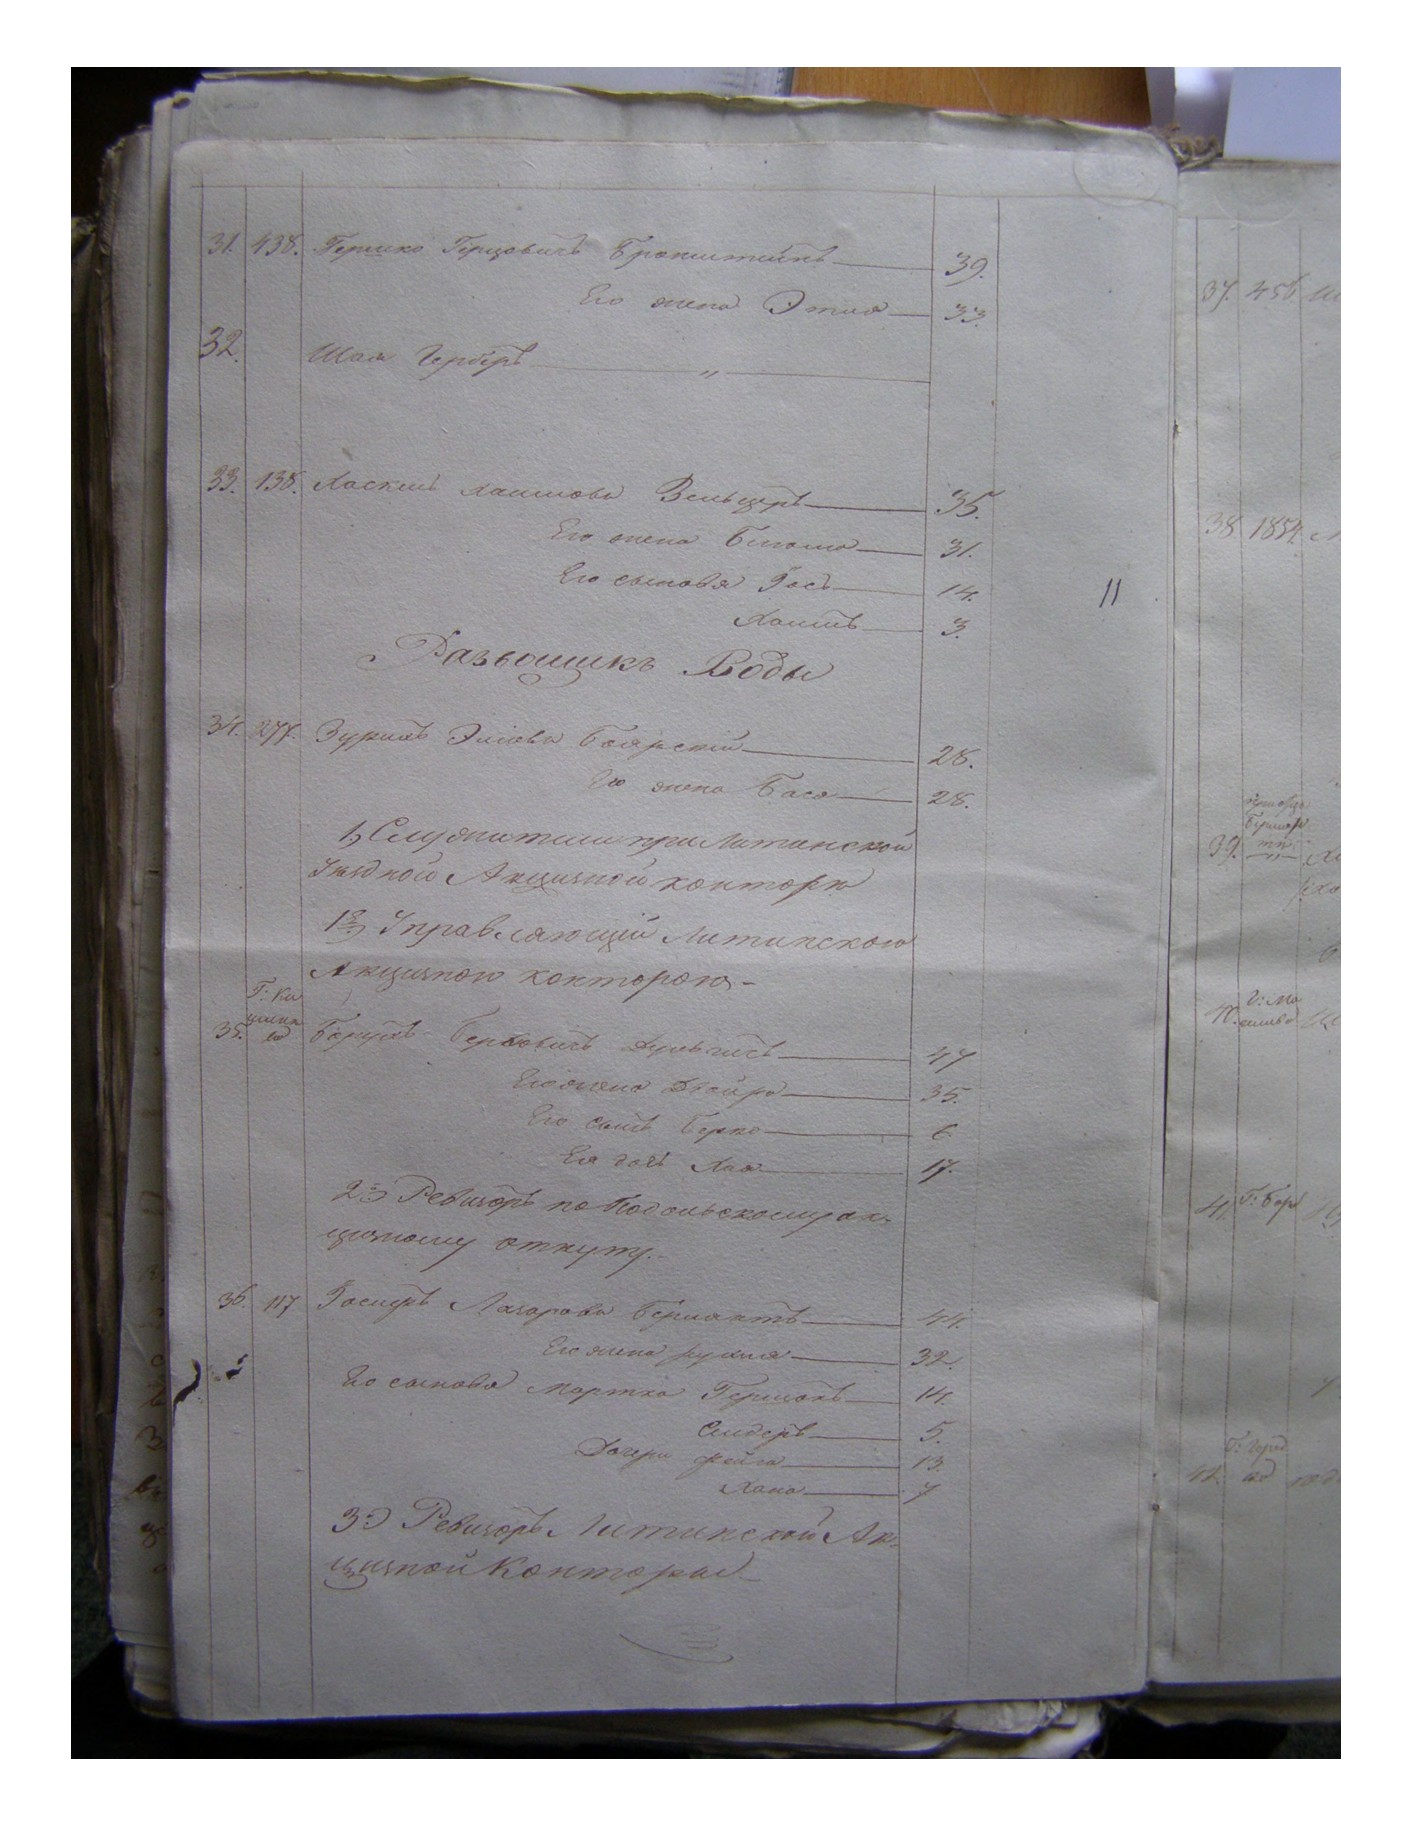 31. 438. Гершко Герцовичъ Бронштейнъ 39.
Его жена Этля 33.
32. Шая Герберъ "
33. 138. Хаскель Хаимовъ Вельцеръ 35.
Его жена 31.
Его сыновья Іосъ 14.
Хаимъ 3.
11
Развощикъ Воды
34. 277. Зурихъ Эліовъ Боярскій 28.
Его жена Бася 28.
1, Служители при Литинской
Уѣздной Акцизной конторѣ
1й, Управляющій Литинскою
Акцизною конторою
35. Г: Ки
шине
ва Борухъ Берковичъ 47
Его жена Двойра 35.
Его сынъ Берко 6
Его дочь Хая 17.
2й Ревизоръ по Подольскому ак-
цизному откупу.
36. 117 Лазаровъ 44.
Его жена Рухля 32.
Его сыновья Мортко Гершонъ 14.
Сендеръ 5.
Дочери Фейга 13.
Хана 7
3й Ревизоръ Литинской Ак-
цизной Конторы
37. 456
38 1854
39.
41. Г: Бар